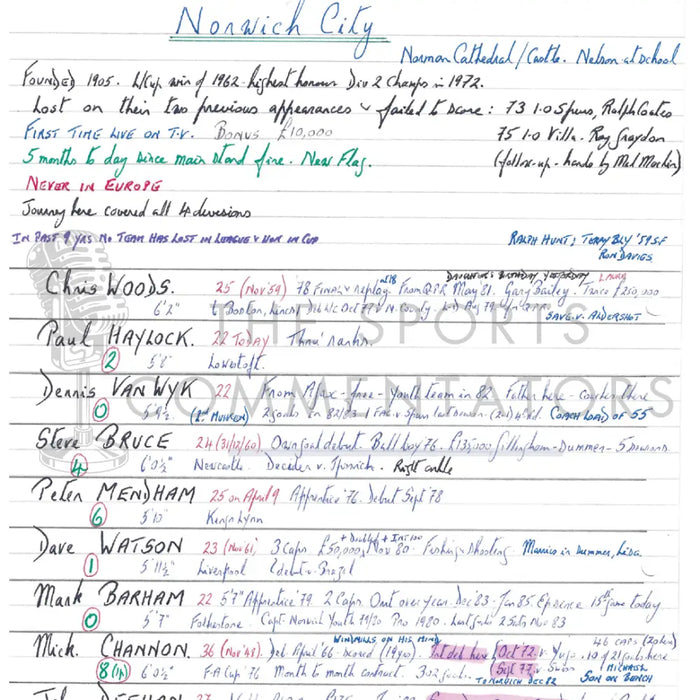 Norwich City
Norman Cathedral/Castle. Nelson at School
FOUNDED 1905. L/Cup win of 1962 - highest honour Div 2 Champs in 1972.
Lost on their two previous appearances & failed to score: 73 1.0 Spurs, Ralph Coates
FIRST TIME LIVE ON T.V. BONUS £10,000
75 1.0 Villa. Ray Graydon
5 months to day since main stand fire. New Flag.
(follow-up - hands by Mel Machin)
NEVER IN EUROPE
Journey here covered all 4 divisions
IN PAST 9 YRS NO TEAM HAS LOST IN LEAGUE & WON IN CUP
RALPH HUNT; TERRY BLY '59 S.F
RON DAVIES
DAUGHTER'S BIRTHDAY YESTERDAY LAURA
Chris WOODS. 25 (Nov 59) '78 FINAL & replay at 18 From QPR May 81. Gary Bailey. £250,000
6'2" Boston, County
SAVE v. ALDERSHOT
THE SPORTS
Paul HAYLOCK. 22 TODAY Thro' ranks.
2 5'8" Lowestoft.
Dennis VAN WYK 22 From Ajax - free - Youth team in 82. Father here - Coaches there
COMMENTATORS
0 5'9½ 2 goals in 82/83 COACH LOAD OF 55
Steve BRUCE 24 (31/12/60). Own goal debut. Ball boy 76. £135,000 Gillingham - Summer - 5 Downs
4 6'0½" Newcastle. Decider v. Ipswich. Right ankle
Peter MENDHAM 25 on April 9 Apprentice '76. Debut Sept '78
6 5'10" Kings Lynn
Dave WATSON 23 (Nov 61) 3 Caps £50,000 Nov 80. Fishing & Shooting. Marries in Summer, Lisa.
1 5'11½" Liverpool debut v. Brazil
Mark BARHAM 22 5'7" Apprentice '79. 2 Caps. Out over year - Dec 83 - Jan 85. 15th game today
0 5'7" Folkestone. Capt. Norwich Youth 79/20 Pro 1980. Last full 2 Sets Nov 83
WINDMILLS ON HIS MIND
46 CAPS
Mick CHANNON 36 (Nov 48) Deb April 66 - scored (1970). Int deb here Oct 72 v. Yugo. 10 of 21 goals here
8 6'0½" F.A Cup 76 Month to month contract. 302 goals. Sept 77 v. Swiss MICHAEL
TO NORWICH DEC 82 SON ON BENCH
DEEHAN 27